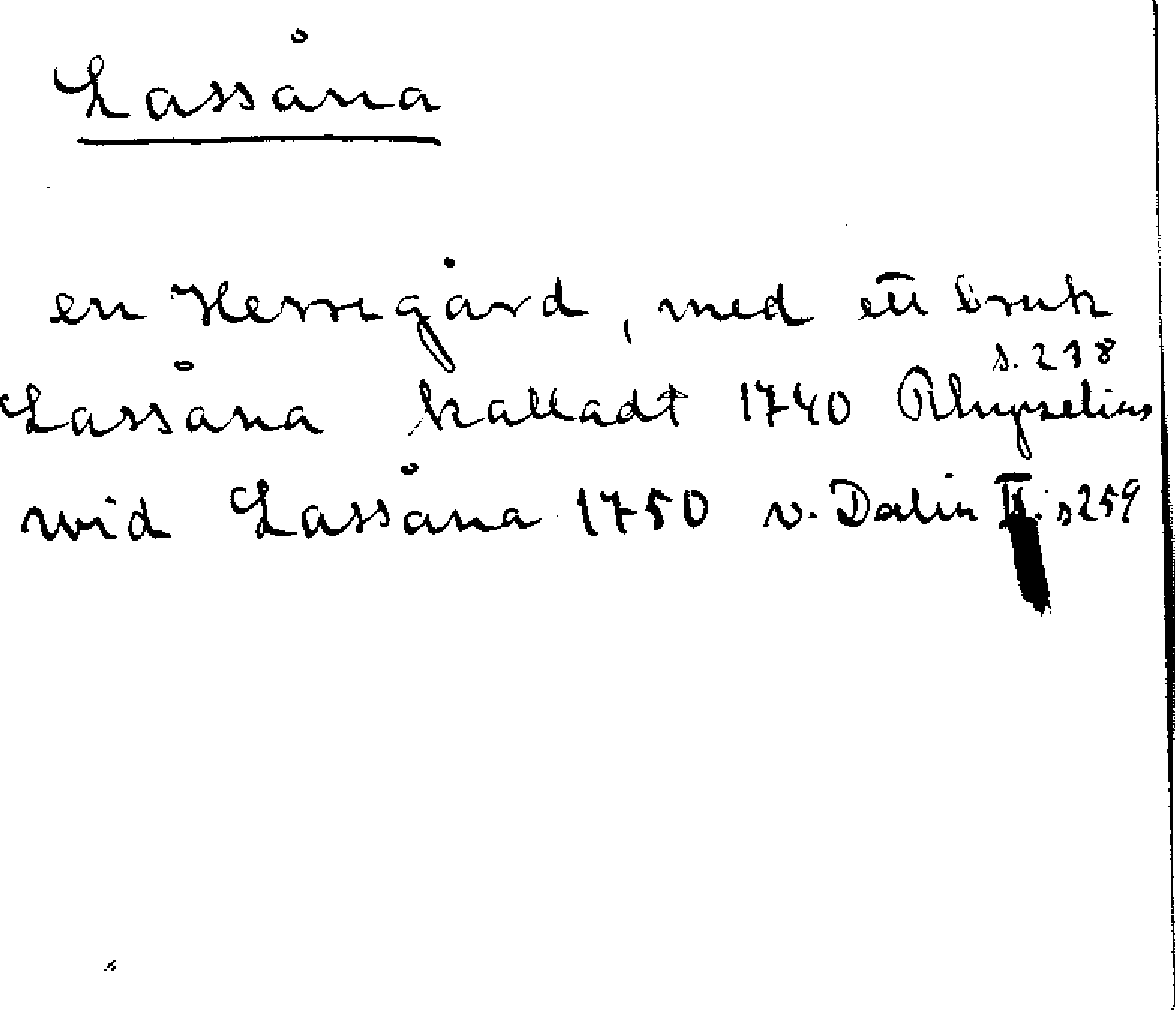 Lassåna
en Herregård, med ett bruk
s. 218
Lassåna kalladt 1740 Rhyzelius
wid Lassåna 1750 v. Dalin II. s 259